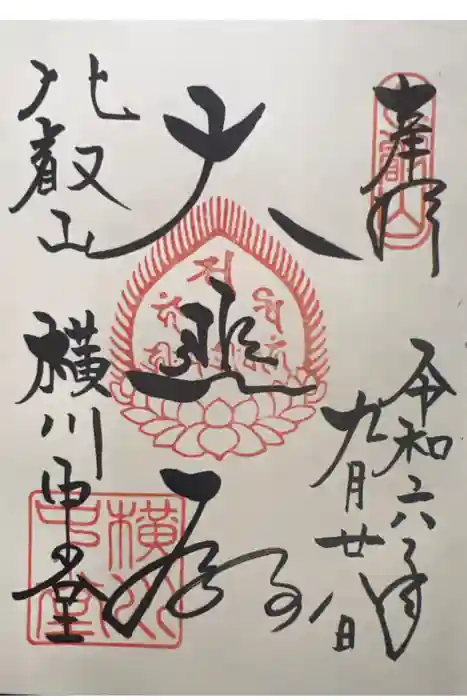 奉拝
令和六年
九月廿八日
大悲殿
比叡山 横川中堂
横川
中堂